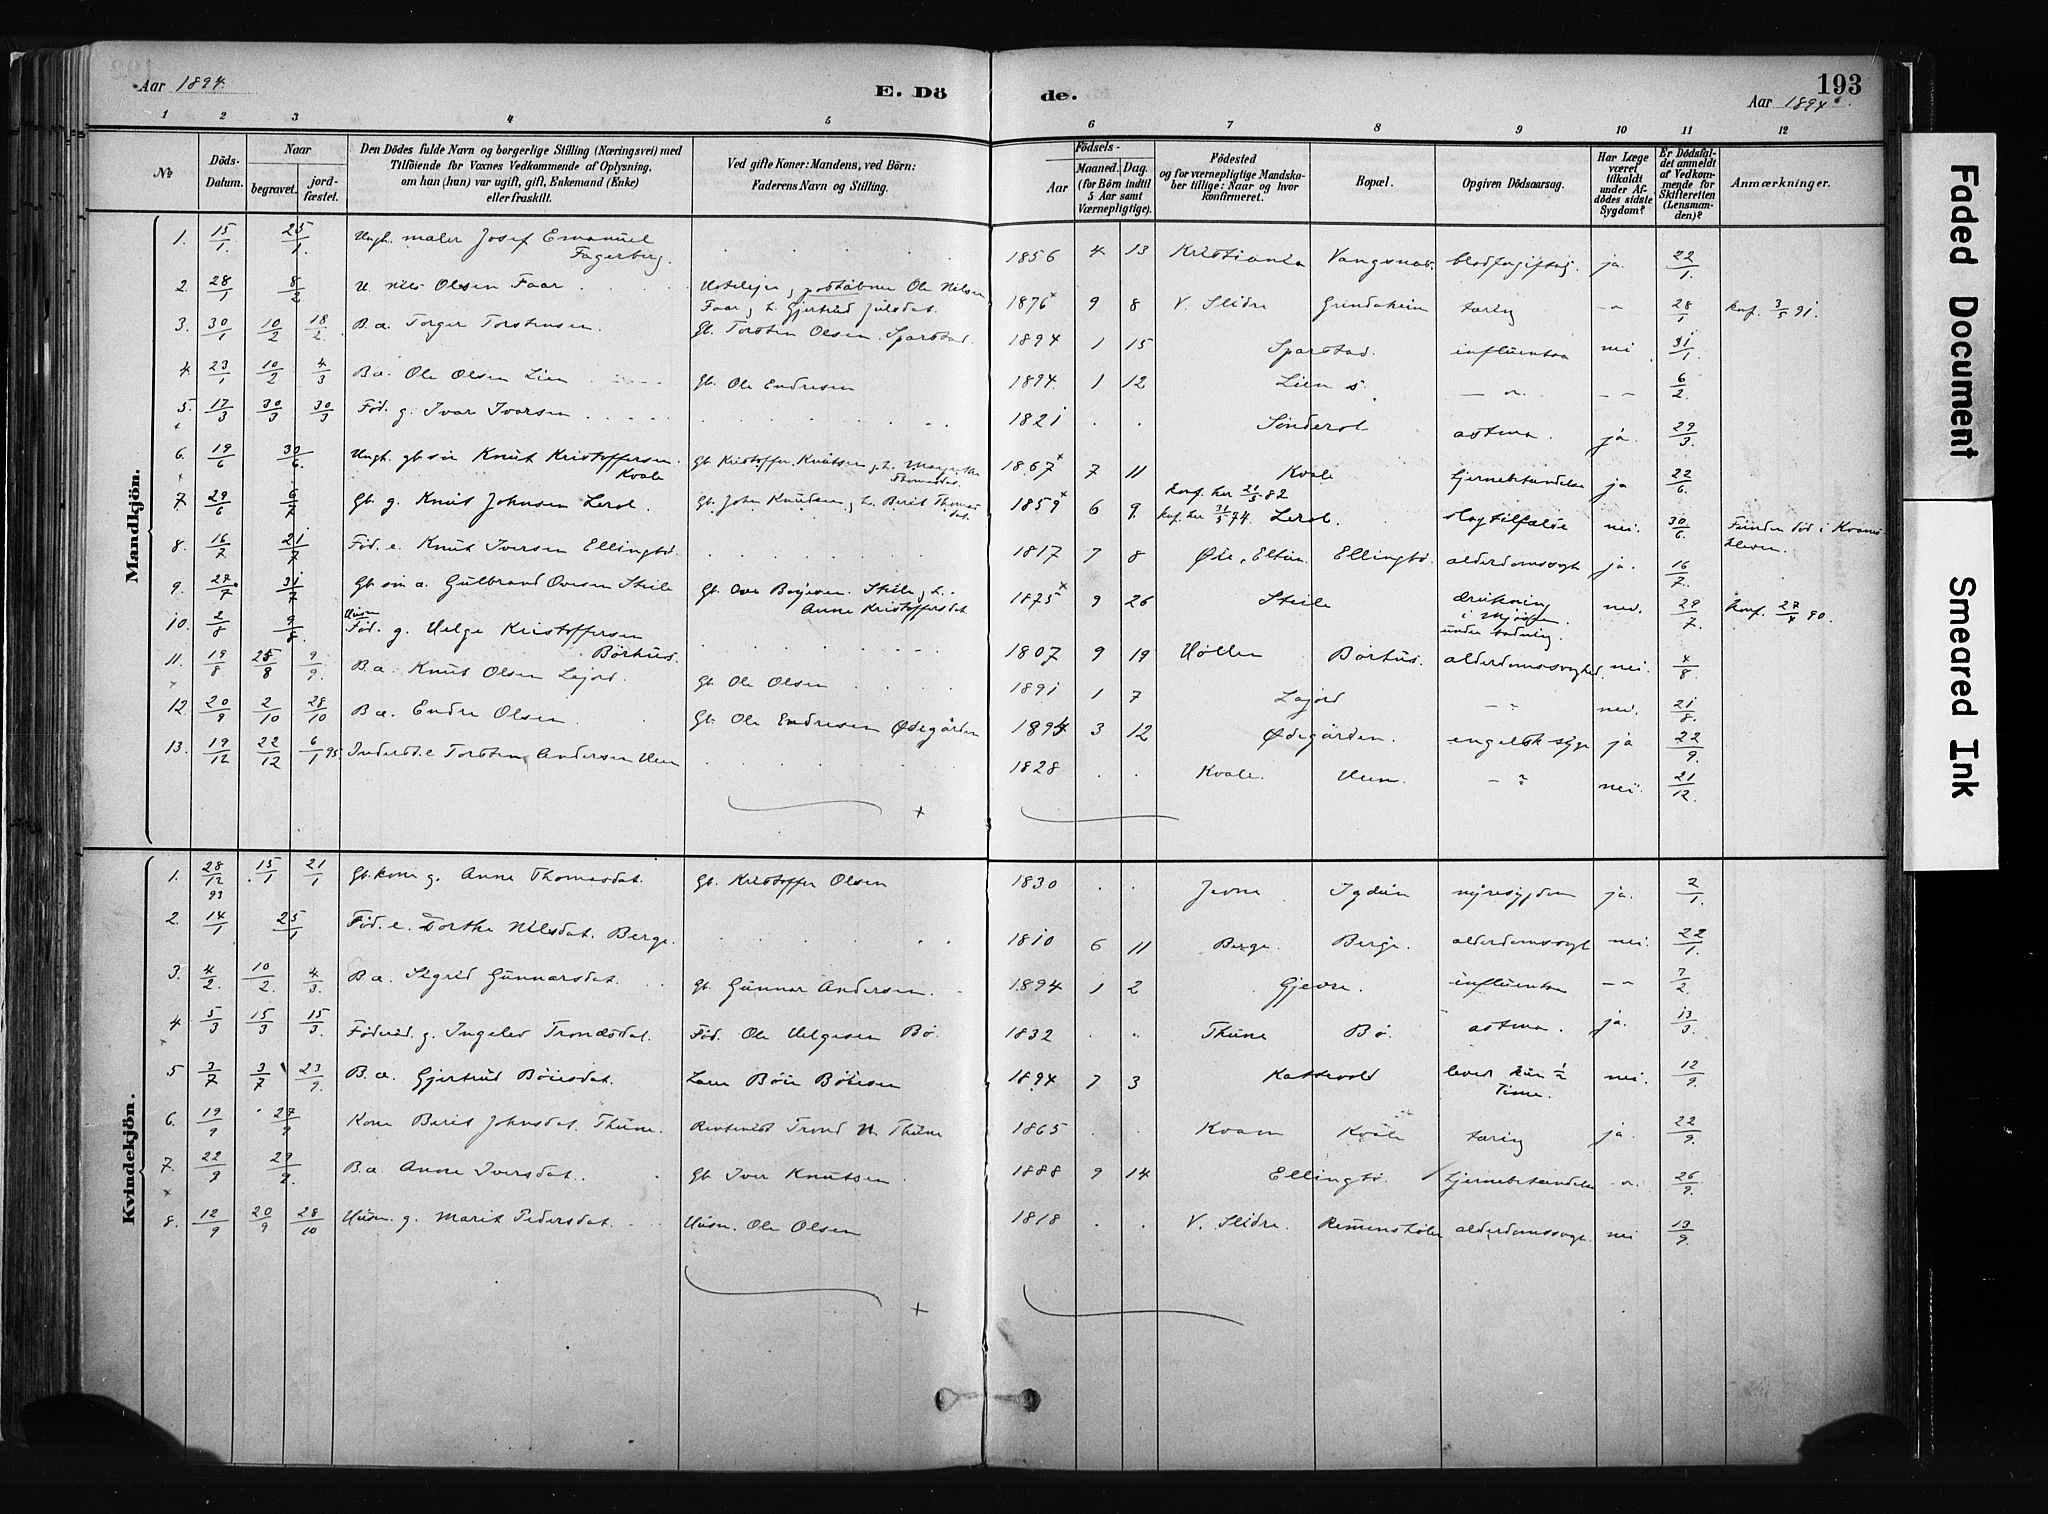 Aar 1894.
E. Dö
de.
193
Aar 1894.
1 2 3 4 5 6 7 8 9 10 11 12
№
Döds-Datum.
Naar
begravet.
jord-fæstet.
Den Dödes fulde Navn og borgerlige Stilling (Næringsvei) med
Tilföiende for Voxnes Vedkommende af Oplysning,
om han (hun) var ugift, gift, Enkemand (Enke)
eller fraskilt.
Ved gifte Koner: Mandens, ved Börn:
Faderens Navn og Stilling.
Födsels-
Aar
Maaned. Dag.
(for Börn indtil
5 Aar samt
Værnepligtige).
Födested
og for værnepligtige Mandska-
ber tillige: Naar og hvor
konfirmeret.
Bopæl.
Opgiven Dödsaarsag.
Har Læge
været
tilkaldt
under Af-
dödes sidste
Sygdom?
Er Dödsfal-
det anmeldt
af Vedkom-
mende for
Skifteretten
(Lensman-
den)?
Anmærkninger.
Mandkjön.
1. 15/1. 25/1 Ungk. maler Josef Emanuel Fagerberg. 1856 4 13 Kristiania Vangsnes. blodforgiftng. ja. 22/1.
2. 28/1 8/2 U. Nils Olsen Faar Hoteleier, postaabner Ole Nilsen Faar, h. Gjertrud Julsdat. 1876 9 8 V. Slidre Grindaheim tæring -"- 28/1 konf. 3/5 91.
3. 30/1 10/2 18/2. B. a. Torger Torstensen. Gb. Torsten Olsen Sparstad. 1894 1 15 Sparstad. influentsa nei 31/1.
4. 23/1 10/2 4/3 B. a. Ole Olsen Lien Gb. Ole Endresen 1894. 1 12 Lien s. -"- -"- 6/2.
5. 17/3 30/3 30/3 Föd. g. Ivar Ivarsen 1821 Sönderol astma. ja. 29/3.
6. 19/6 30/6. Ungk. gb.sön Knut Kristoffersen Kvale Gb. Kristoffer Knutsen, h. Thomasdat. 1867 7 11 Kvale Konf. her 21/5 82 hjernebetændelse ja 22/6.
7. 29/6 6/7 Gb. g. Knut Johnsen Lerol. Gb. John Knudsen, h. Berit Thomasdat. 1859 6 9. konf. her 31/5 74. Lerol. slagtilfælde nei. 30/6. Funden död i Kvamskleven.
8. 16/7 21/7 Föd. e. Knut Iversen Ellingbö. 1817 7 8 Öie, Eltun Ellingbö. alderdomssvagh. ja. 16/7.
9. 27/7. 31/7 Gb.sön a. Gulbrand Ovesen Steile Gb. Ove Steile, h. Anne Kristoffersdat. 1875 9 26 Steile drukning i Mjösen under badning. nei. 29/7. Konf. 27/4 90.
10. 2/8 9/8. Husm Föd. g. Helge Kristoffersen Börhus. 1807 9 19 Höllen Börhus. alderdomssvaghed. nei. 4/8
11. 19/8 25/8 9/9. B. a. Knut Olsen Lajord. Gb. Ole Olsen 1891 1 7 Lajord -"- nei. 21/8.
12. 20/9 2/10 28/10 B. a. Endre Olsen. Gb. Ole Endresen Ödegården 1894 3 12 Ödegården. engelsk syge ja 22/9.
13. 19/12 22/12 6/1 95. Inderst e. Torsten Andersen Uem 1828 Kvale. Uem. -"- nei. 21/12.
Kvindekjön.
1. 28/12 93 15/1 21/1 Gb.kone g. Anne Thomasdat. Gb. Kristoffer Olsen 1830 Jevne nyresygdom ja. 2/1.
2. 14/1 25/1 Föd. e. Dorthe Nilsdat. Berge. 1810 6 11 Berge. Berge. alderdomssvagh nei. 22/1.
3. 4/2. 10/2. 4/3. B. a. Sigrid Gunnarsdat. Gb. Gunnar Andersen. 1894 1 2 Gjevre. influentsa -"- 7/2.
4 5/3 15/3 15/3. Föderåd. g. Ingelev Trondsdat. Föd. Ole Helgesen Bö. 1832 Thune Bö. astma. ja. 13/3.
5 3/7 3/7 23/9. B. a. Gjertrud Böiesdat. Böie Böiesen 1894 7 3 Kattevold levet kun 1/2 Time. nei. 12/9.
6. 19/9 27/9 Kone Berit Johnsdat. Thune. Trond N. Thune 1865 Kvam Kvåle tæring ja. 22/9.
7. 22/9 29/9. B. a. Anne Iversdat. Gb. Iver Knutsen. 1888 9 14 Ellingbö. hjernebetændelse -"- 26/9.
8. 12/9 20/9 28/10 Husm. g. Marit Pedersdat. Husm. Ole Olsen 1818 V. Slidre. alderdomssvagh. nei 13/9.
Faded Document
Smeared Ink